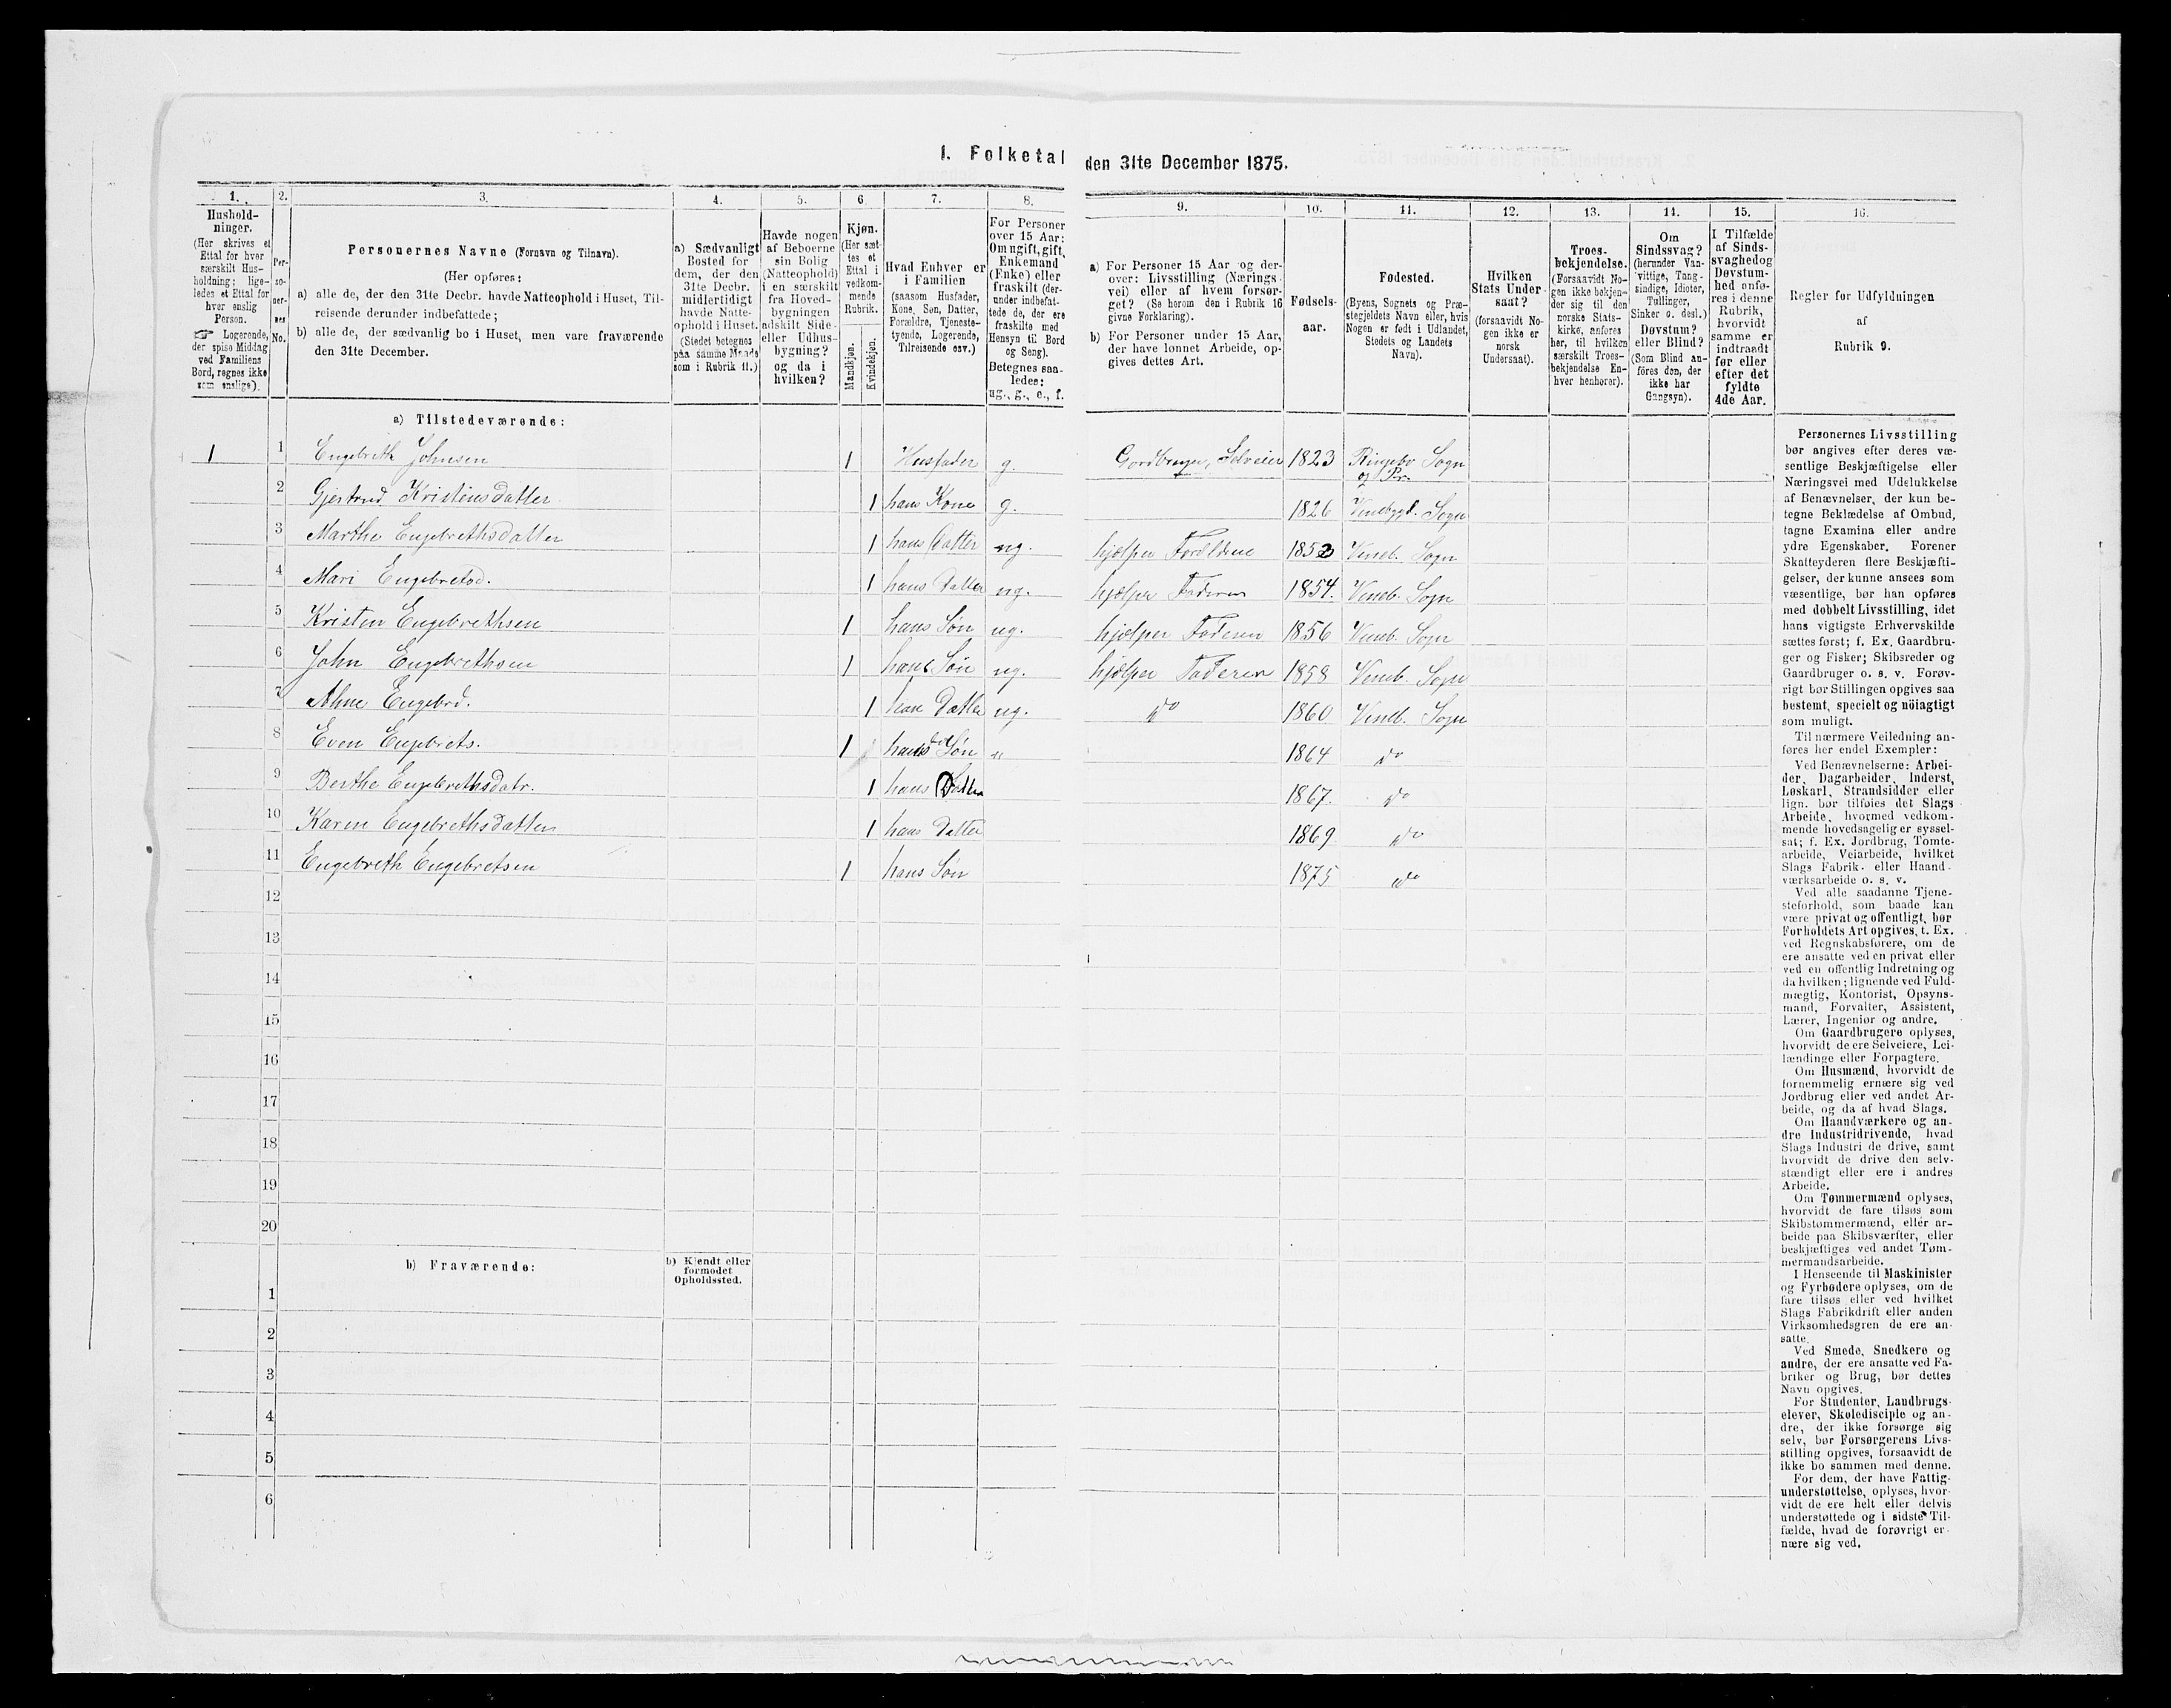 1. Folketal den 31te December 1875.
1. 2. 3. 4. 5. 6. 7. 8. 9. 10. 11. 12. 13. 14. 15. 16.
Hushold-
ninger.
(Her skrives et
Ettal for hver
særskilt Hus-
holdning; lige-
ledes et Ettal for
hver enslig
Person.
☞ Logerende,
der spise Middag
ved Familiens
Bord, regnes ikke
som enslige).
Per-
so-
ner-
nes
No.
Personernes Navne (Fornavn og Tilnavn).
(Her opføres:
a) alle de, der den 31te Decbr. havde Natteophold i Huset, Til-
reisende derunder indbefattede;
b) alle de, der sædvanlig bo i Huset, men vare fraværende
den 31te December.
a) Sædvanligt
Bosted for
dem, der den
31te Decbr.
midlertidigt
havde Natte-
ophold i Huset.
(Stedet betegnes
paa samme Maade
som i Rubrik 11.)
Havde nogen
af Beboerne
sin Bolig
(Natteophold)
i en særskilt
fra Hoved-
bygningen
adskilt Side-
eller Udhus-
bygning?
og da i
hvilken?
Kjøn.
(Her sæt-
tes et
Ettal i
vedkom-
mende
Rubrik.
Mandkjøn.
Kvindekjøn.
Hvad Enhver er
i Familien
(saasom Husfader,
Kone, Søn, Datter,
Forældre, Tjeneste-
tyende, Logerende,
Tilreisende osv.)
For Personer
over 15 Aar:
Om ugift, gift,
Enkemand
(Enke) eller
fraskilt (der-
under indbefat-
tede de, der ere
fraskilte med
Hensyn til Bord
og Seng).
Betegnes saa-
ledes:
ug., g., e., f.
a) For Personer 15 Aar og der-
over: Livsstilling (Nærings-
vei) eller af hvem forsør-
get? (Se herom den i Rubrik 16
givne Forklaring).
b) For Personer under 15 Aar,
der have lønnet Arbeide, op-
gives dettes Art.
Fødsels-
aar.
Fødested.
(Byens, Sognets og Præ-
stegjeldets Navn eller, hvis
Nogen er født i Udlandet,
Stedets og Landets
Navn).
Hvilken
Stats Under-
saat?
(forsaavidt No-
gen ikke er
norsk
Undersaat).
Troes-
bekjendelse.
(Forsaavidt No-
gen ikke bekjen-
der sig til den
norske Stats-
kirke, anføres
her, til hvilken
særskilt Troes-
bekjendelse En-
hver henhører).
Om
Sindssvag?
(herunder Van-
vittige, Tang-
sindige, Idioter,
Tullinger,
Sinker o. desl.)
Døvstum?
eller Blind?
(Som Blind an-
føres den, der
ikke har
Gangsyn).
I Tilfælde
af Sinds-
svaghed og
Døvstum-
hed anfø-
res i denne
Rubrik,
hvorvidt
samme er
indtraadt
før eller
efter det
fyldte
4de Aar.
Regler for Udfyldningen
af
Rubrik 9.
a) Tilstedeværende:
1 1 Engebreth Johnsen 1 Husfader g. Gordbruger, Selveier 1823 Ringebo Sogn
og Pr.
2 Gjertrud Kristensdatter 1 hans Kone g. 1826 Venebygd. Sogn
3 Marthe Engebrethsdatter 1 hans Datter ug. hjælper Forældrene 1852 Veneb. Sogn
4 Mari Engebretsd. 1 hans Datter ug. hjælper Faderen 1854. Veneb. Sogn
5 Kristen Engebrethsen 1 hans Søn ug. hjælper Faderen 1856 Veneb. Sogn
6 John Engebrethsen 1 hans Søn ug. hjælper Faderen 1858 Veneb. Sogn
7 Ahne Engebrd. 1 hans Datter ug. do 1860 Veneb. Sogn
8 Even Engebrets. 1 hans Søn 1864 do
9 Berthe Engebrethsdatr. 1 hans Datter 1867. do
10 Karen Engebrethsdatter 1 hans Datter 1869 do
11 Engebreth Engebretsen 1 hans Søn 1875 do
12
13
14
15
16
17
18
19
20
b) Fraværende:
b) Kjendt eller
formodet
Opholdssted.
1
2
3
4
5
6
Personernes Livsstilling
bør angives efter deres væ-
sentlige Beskjæftigelse eller
Næringsvei med Udelukkelse
af Benævnelser, der kun be-
tegne Beklædelse af Ombud,
tagne Examina eller andre
ydre Egenskaber. Forener
Skatteyderen flere Beskjæfti-
gelser, der kunne ansees som
væsentlige, bør han opføres
med dobbelt Livsstilling, idet
hans vigtigste Erhvervskilde
sættes først; f. Ex. Gaardbru-
ger og Fisker; Skibsreder og
Gaardbruger o. s. v. Forøv-
rigt bør Stillingen opgives saa
bestemt, specielt og nöiagtigt
som muligt.
Til nærmere Veiledning an-
føres her endel Exempler:
Ved Benævnelserne: Arbei-
der, Dagarbeider, Inderst,
Løskarl, Strandsidder eller
lign. bør tilføies det Slags
Arbeide, hvormed vedkom-
mende hovedsagelig er syssel-
sat; f. Ex. Jordbrug, Tomte-
arbeide, Veiarbeide, hvilket
Slags Fabrik- eller Haand-
værksarbeide o. s. v.
Ved alle saadanne Tjene-
steforhold, som baade kan
være privat og offentligt, bør
Forholdets Art opgives, t. Ex.
ved Regnskabsførere, om de
ere ansatte ved en privat eller
ved en offentlig Indretning og
da hvilken; lignende ved Fuld-
mægtig, Kontorist, Opsyns-
mand, Forvalter, Assistent,
Lærer, Ingeniør og andre.
Om Gaardbrugere oplyses,
hvorvidt de ere Selveiere, Lei-
lændinge eller Forpagtere.
Om Husmænd, hvorvidt de
fornemmelig ernære sig ved
Jordbrug eller ved andet Ar-
beide, og da af hvad Slags.
Om Haandværkere og an-
dre Industridrivende, hvad
Slags Industri de drive, samt
hvorvidt de drive den selv-
stændigt eller ere i andres
Arbeide.
Om Tømmermænd oplyses,
hvorvidt de fare tilsøs som
Skibstømmermænd, eller ar-
beide paa Skibsværfter, eller
beskjæftiges ved andet Tøm-
mermandsarbeide.
I Henseende til Maskinister
og Fyrbødere oplyses, om de
fare tilsøs eller ved hvilket
Slags Fabrikdrift eller anden
Virksomhedsgren de ere an-
satte.
Ved Smede, Snedkere og
andre, der ere ansatte ved Fa-
briker og Brug, bør dettes
Navn opgives.
For Studenter, Landbrugs-
elever, Skoledisciple og an-
dre, der ikke forsørge sig
selv, bør Forsørgerens Livs-
stilling opgives, forsaavidt de
ikke bo sammen med denne.
For dem, der have Fattig-
understøttelse, oplyses, hvor-
vidt de ere helt eller delvis
understøttede og i sidste Til-
fælde, hvad de forøvrigt er-
nære sig ved.